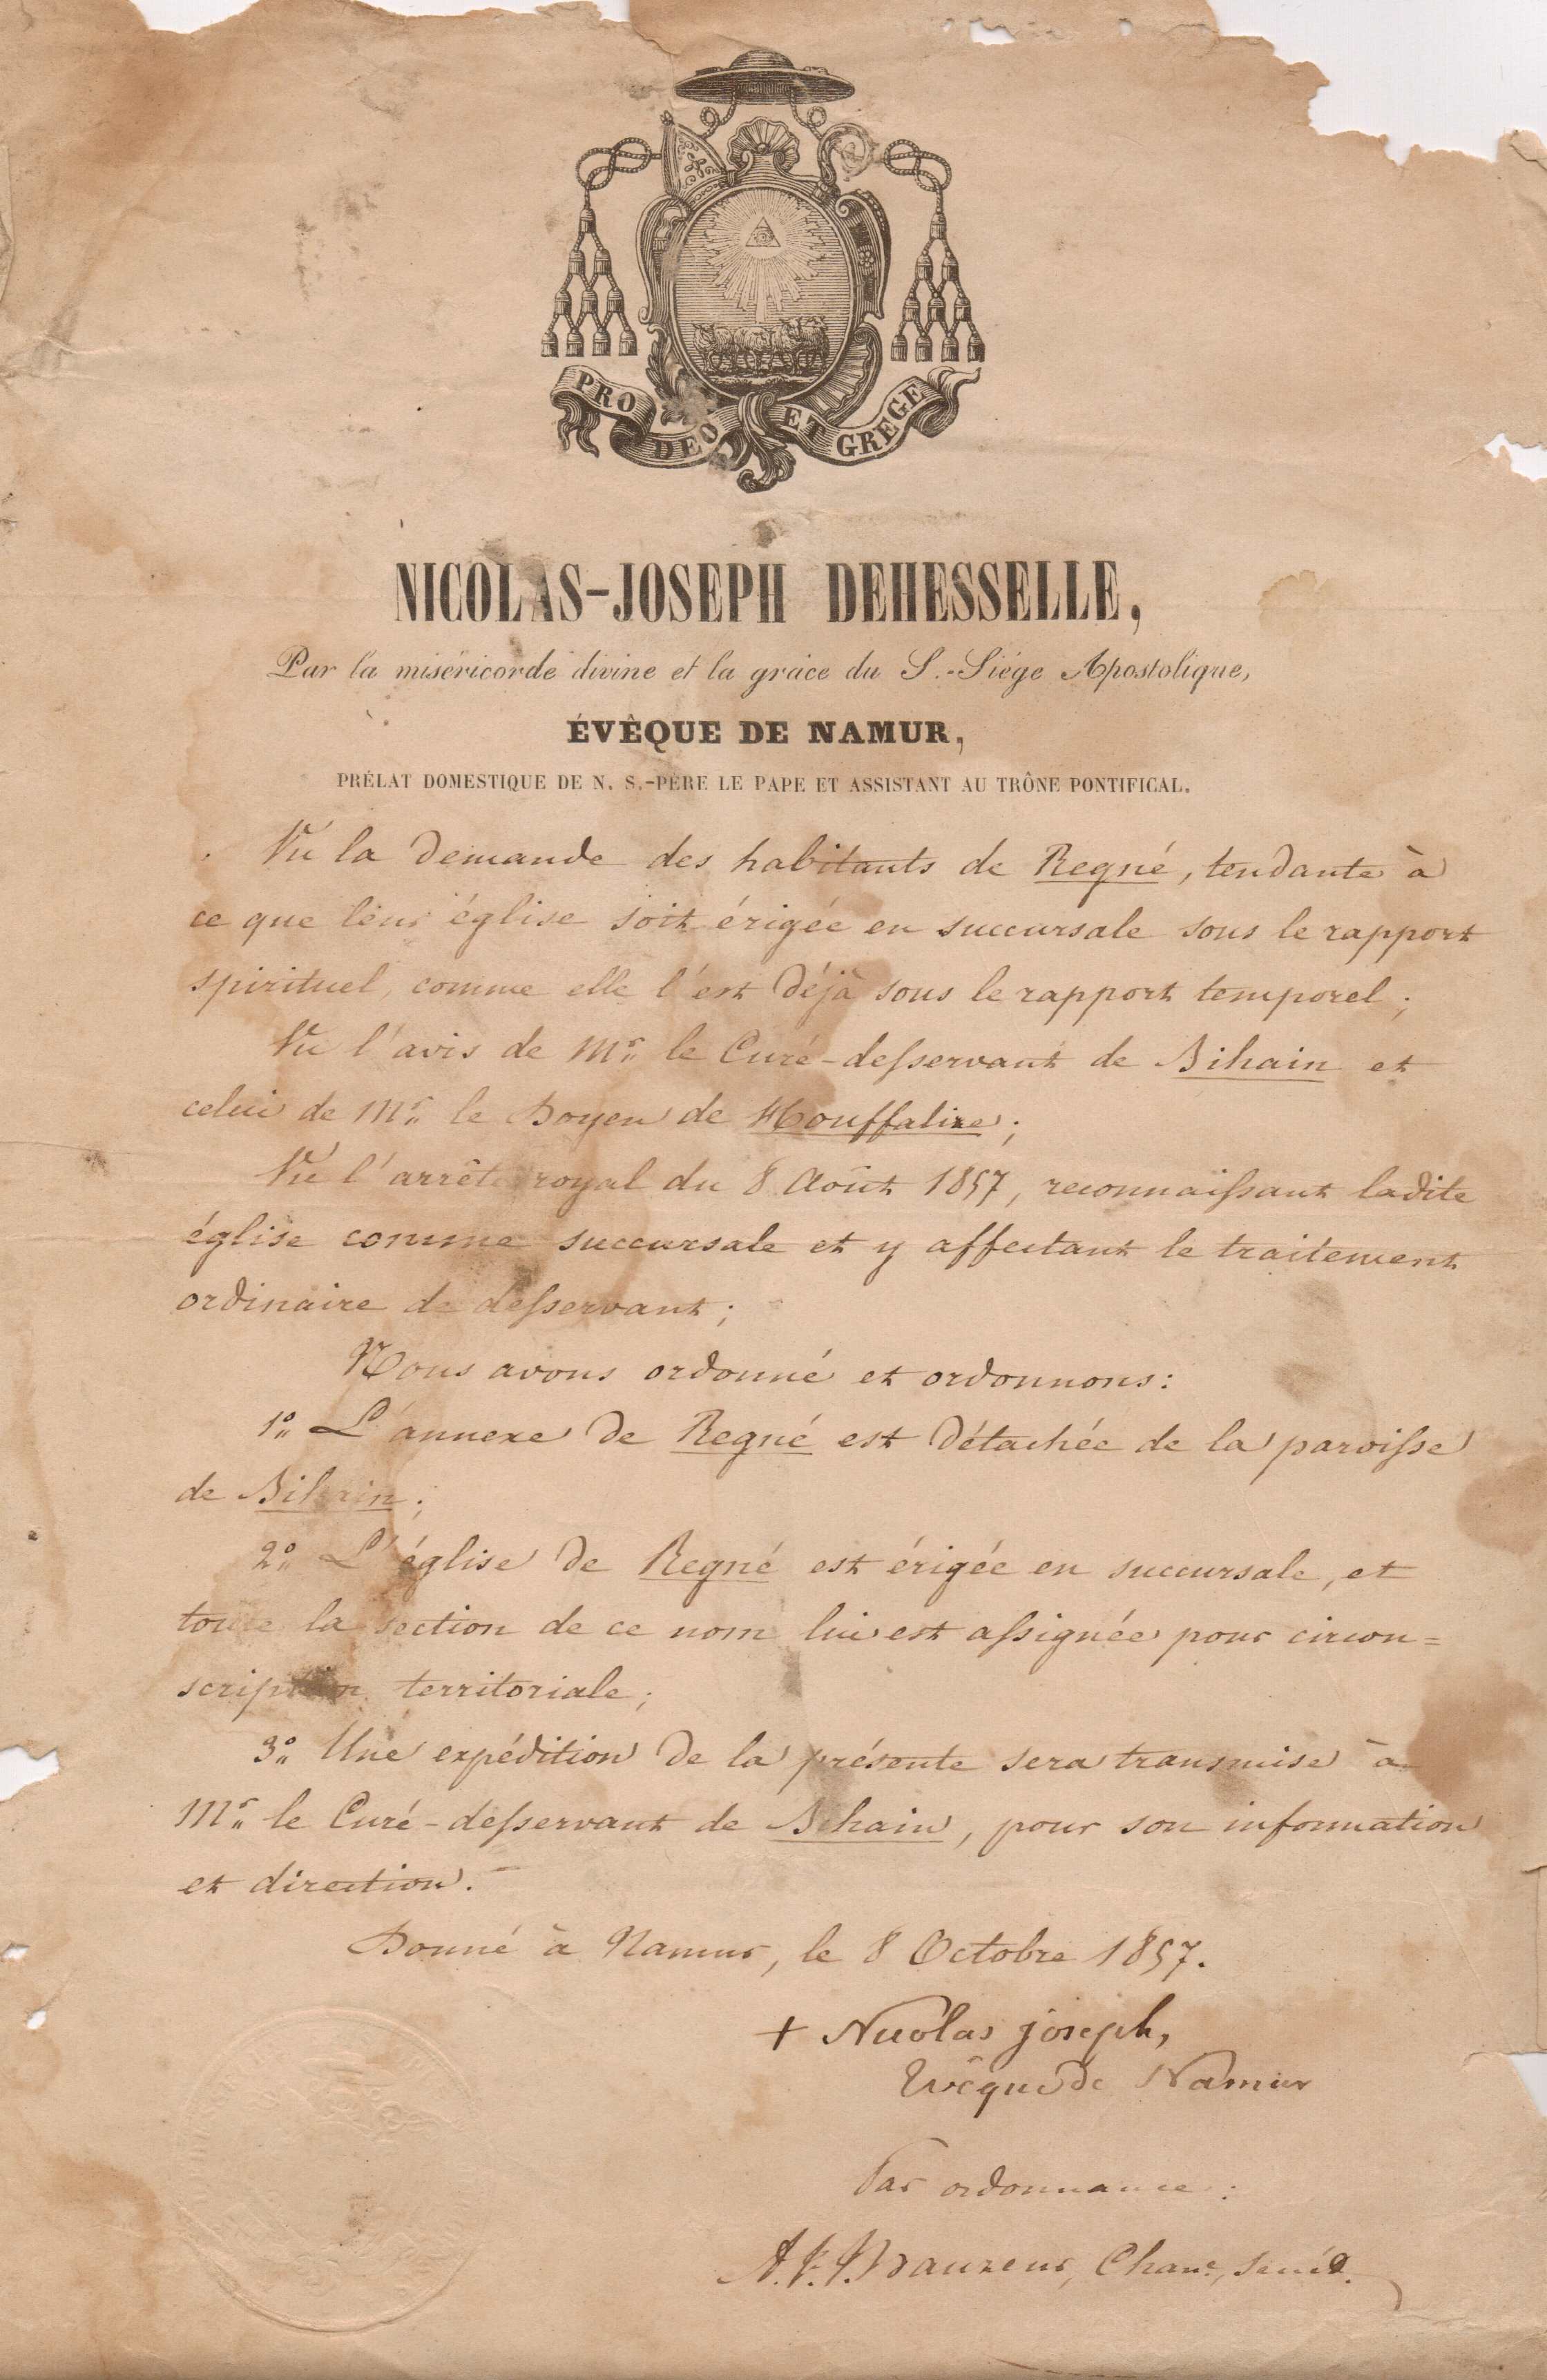 PRO DEO ET GREGE
NICOLAS-JOSEPH DEHESSELLE,
Par la miséricorde divine et la grâce du S.-Siége Apostolique,
ÉVÊQUE DE NAMUR,
PRÉLAT DOMESTIQUE DE N. S.-PÈRE LE PAPE ET ASSISTANT AU TRÔNE PONTIFICAL.
Vu la demande des habitants de Regné, tendante à
ce que leur église soit érigée en succursale sous le rapport
spirituel comme elle l'est déjà sous le rapport temporel;
Vu l'avis de Mr. le Curé-desservant de Bihain et
celui de Mr. le Doyen de Houffalize;
Vu l'arrêté royal du 8 Août 1857, reconnaissant ladite
église comme succursale et y affectant le traitement
ordinaire de desservant;
Nous avons ordonné et ordonnons:
1o. L'annexe de Regné est détachée de la paroisse
de Bihain;
2o. L'église de Regné est érigée en succursale, et
toute la section de ce nom lui est assignée pour circon=
scription territoriale;
3o. Une expédition de la présente sera transmise à
Mr. le Curé-desservant de Bihain, pour son information
et direction.
Donné à Namur, le 8 Octobre 1857.
+ Nicolas joseph,
Evêque de Namur
Par ordonnance:
Chane, secrét.